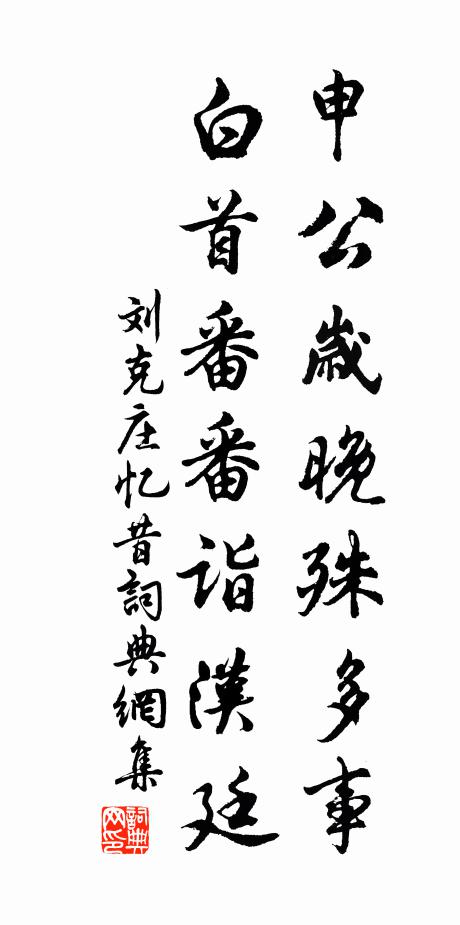 申公歲晚殊多事
白首番番詣漢廷
刘克庄忆昔詞典網集
詞典网印